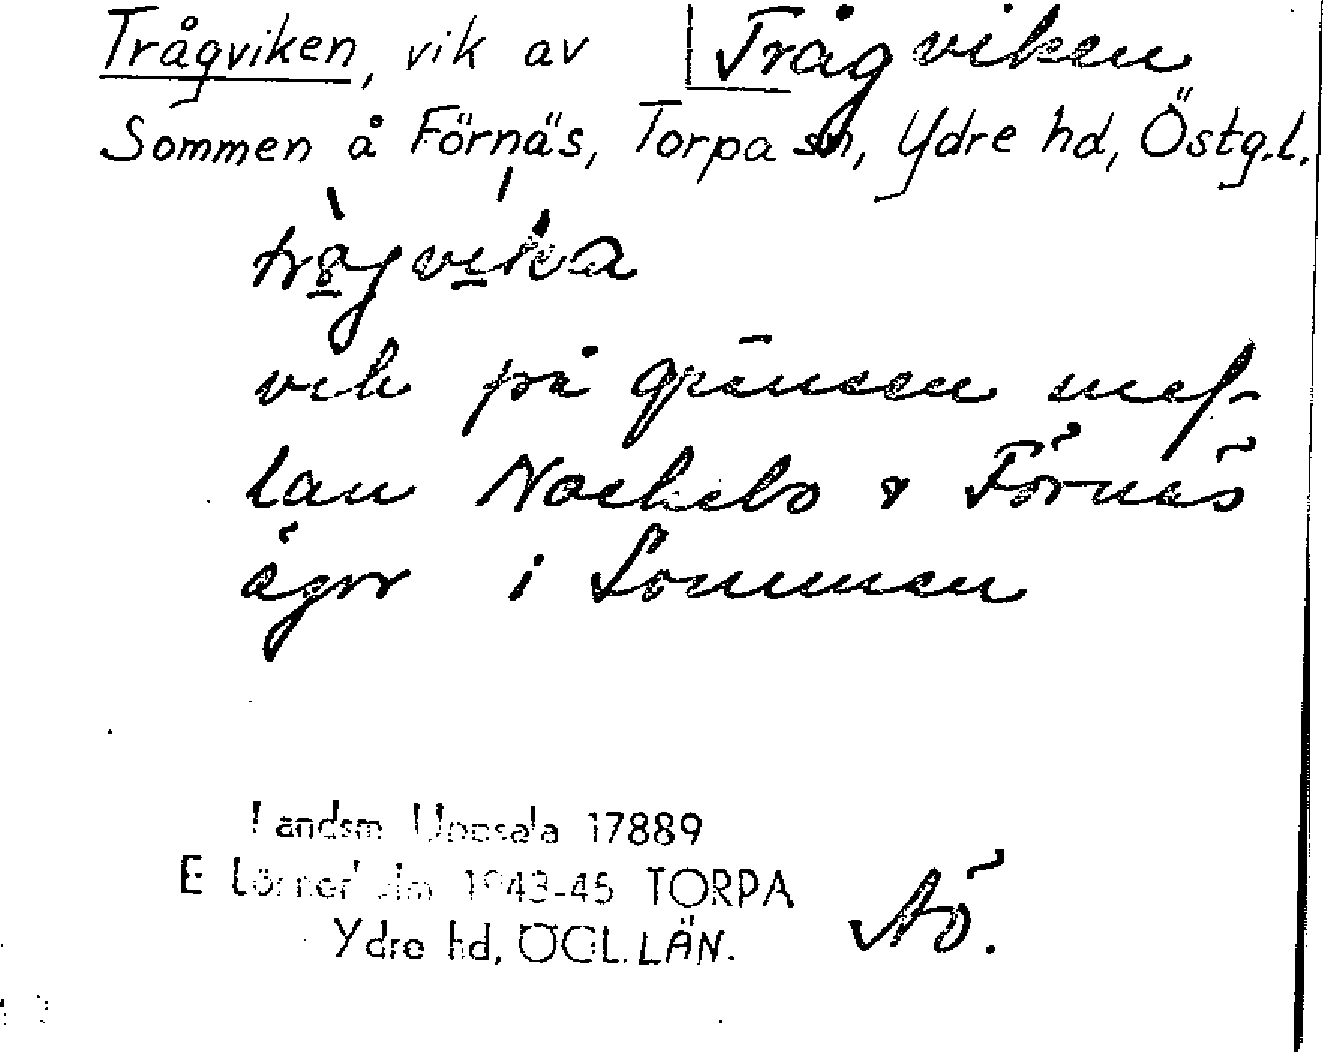 Trågviken, vik av Trågviken
Sommen å Förnäs, Torpa sn, Ydre hd, Östg.l.
trågvika
vik på gränsen mel-
lan Nockebo & Förnäs
ägor i Sommen
Landsm Uppsala 17889
E 1943-45 TORPA
Ydre hd, ÖGL. LÄN.